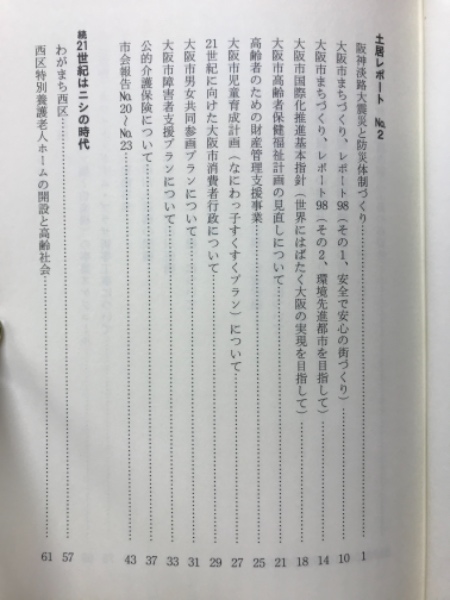 土居レポート No.2
阪神淡路大震災と防災体制づくり……………………1
大阪市まちづくり、レポート98(その1、安全で安心の街づくり)……………………10
大阪市まちづくり、レポート98(その2、環境先進都市を目指して)……………………14
大阪市国際化推進基本指針(世界にはばたく大阪の実現を目指して)……………………18
大阪市高齢者保健福祉計画の見直しについて……………………21
高齢者のための財産管理支援事業……………………25
大阪市児童育成計画(なにわっ子すくすくプラン)について……………………27
21世紀に向けた大阪市消費者行政について……………………29
大阪市男女共同参画プランについて……………………31
大阪市障害者支援プランについて……………………33
公的介護保険について……………………37
市会報告No.20~No.23……………………43
続21世紀はニシの時代
わがまち西区……………………57
西区特別養護老人ホームの開設と高齢社会……………………61